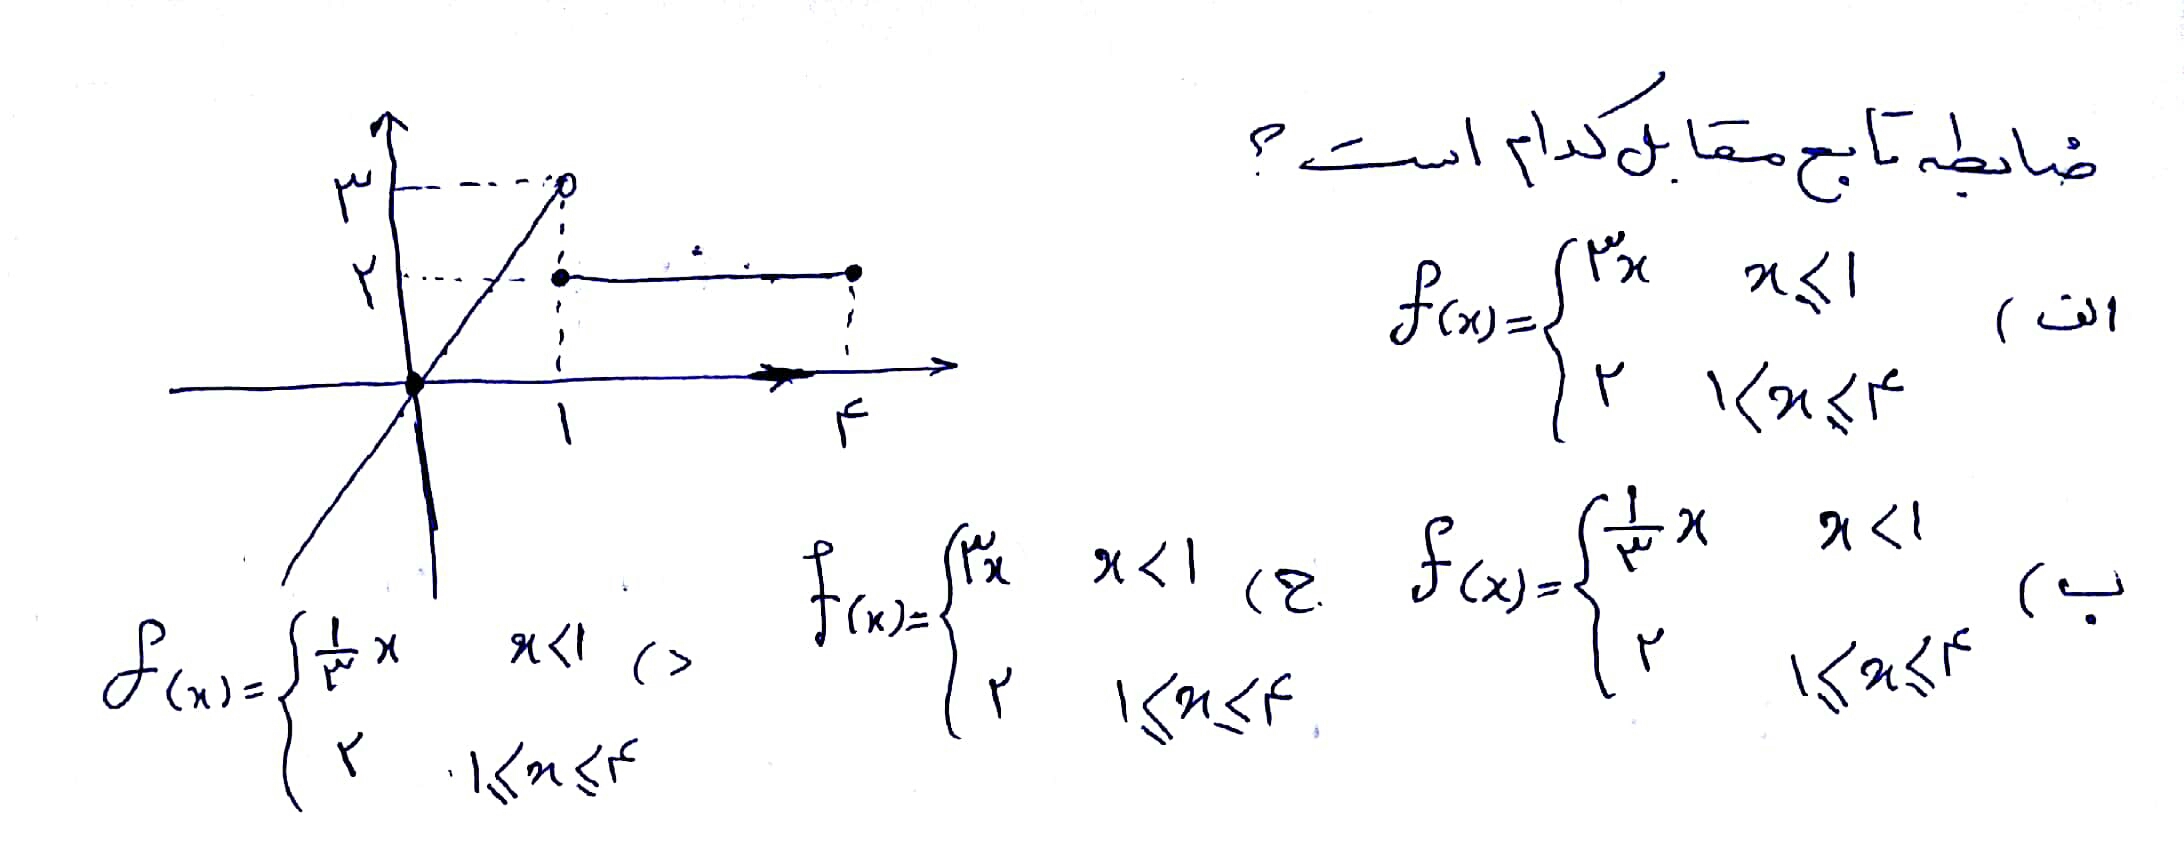 ضابطه تابع مقابل کدام است ؟
الف ) f(x)= { ۳x x≤۱
۲ ۱<x≤۴
ب ) f(x)= { ۱/۳ x x<۱
۲ ۱≤x≤۴
ج ) f(x)= { ۳x x<۱
۲ ۱≤x≤۴
د ) f(x)= { ۱/۳ x x<۱
۲ ۱≤x≤۴
۳
۲
۱ ۴